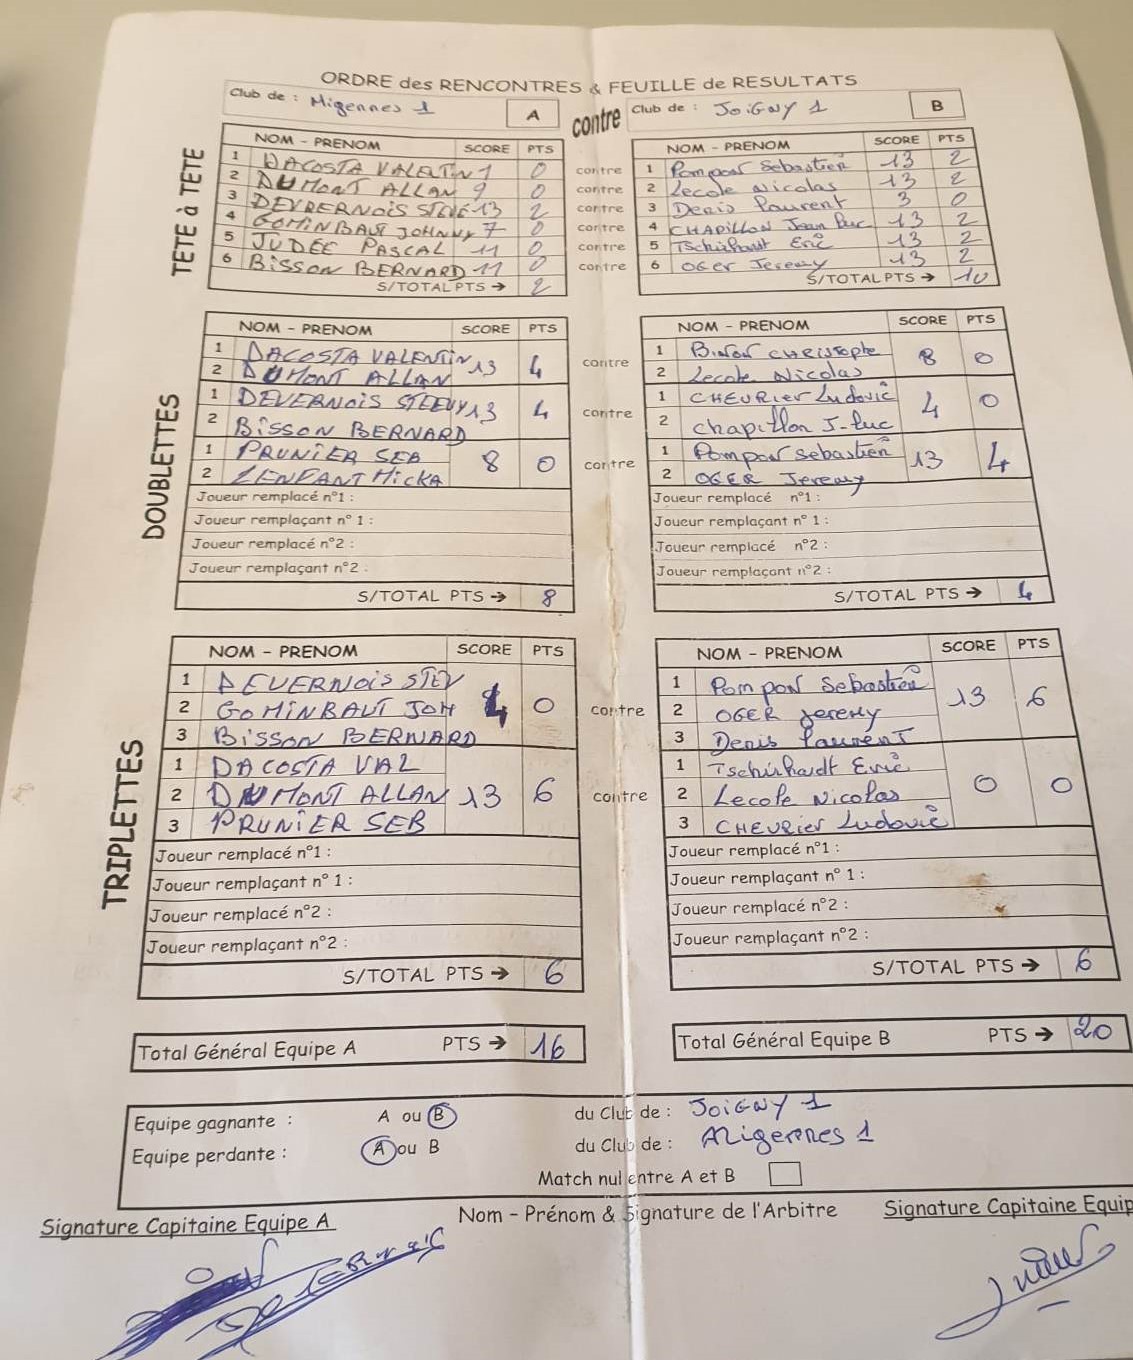 ORDRE des RENCONTRES & FEUILLE de RESULTATS
Club de : Migennes 1 A contre Club de : JOIGNY 1 B
TETE à TETE
NOM - PRENOM SCORE PTS NOM - PRENOM SCORE PTS
1 DACOSTA VALENTIN 1 0 contre 1 Pompon Sebastien 13 2
2 DUMONT ALLAN 9 0 contre 2 Lecole Nicolas 13 2
3 DEVRERNOIS STEVE 13 2 contre 3 Denis Laurent 3 0
4 GOMINBAUT JOHNNY 7 0 contre 4 CHAPILLON Jean Luc 13 2
5 JUDÉE PASCAL 11 0 contre 5 Tschirhardt Eric 13 2
6 BISSON BERNARD 11 0 contre 6 OGER Jeremy 13 2
S/TOTAL PTS → 2 S/TOTAL PTS → 10
DOUBLETTES
NOM - PRENOM SCORE PTS NOM - PRENOM SCORE PTS
1 DACOSTA VALENTIN 13 4 contre 1 Binon CHRISTOPHE 8 0
2 DUMONT ALLAN 2 Lecole Nicolas
1 DEVERNOIS STEEVY 13 4 contre 1 CHEVRIER Ludovic 4 0
2 BISSON BERNARD 2 Chapillon J-Luc
1 PRUNIER SEB 8 0 contre 1 Pompon Sebastien 13 4
2 LENFANT MICKA 2 OGER Jeremy
Joueur remplacé n°1 : Joueur remplacé n°1 :
Joueur remplaçant n° 1 : Joueur remplaçant n° 1 :
Joueur remplacé n°2 : Joueur remplacé n°2 :
Joueur remplaçant n°2 : Joueur remplaçant n°2 :
S/TOTAL PTS → 8 S/TOTAL PTS → 4
TRIPLETTES
NOM - PRENOM SCORE PTS NOM - PRENOM SCORE PTS
1 DEVERNOIS STEV 1 Pompon Sebastien
2 GOMINBAUT JOH 4 0 contre 2 OGER Jeremy 13 6
3 BISSON BERNARD 3 Denis Laurent
1 DACOSTA VAL 1 Tschirhardt Eric
2 DUMONT ALLAN 13 6 contre 2 Lecole Nicolas 0 0
3 PRUNIER SEB 3 CHEVRIER Ludovic
Joueur remplacé n°1 : Joueur remplacé n°1 :
Joueur remplaçant n° 1 : Joueur remplaçant n° 1 :
Joueur remplacé n°2 : Joueur remplacé n°2 :
Joueur remplaçant n°2 : Joueur remplaçant n°2 :
S/TOTAL PTS → 6 S/TOTAL PTS → 6
Total Général Equipe A PTS → 16 Total Général Equipe B PTS → 20
Equipe gagnante : A ou B du Club de : JOIGNY 1
Equipe perdante : A ou B du Club de : Migennes 1
Match nul entre A et B
Signature Capitaine Equipe A Nom - Prénom & Signature de l'Arbitre Signature Capitaine Equip